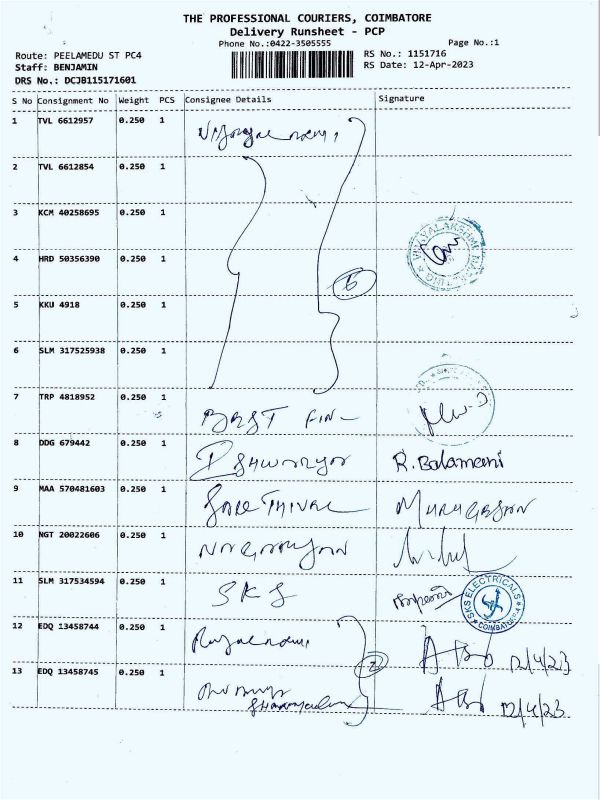 THE PROFESSIONAL COURIERS, COIMBATORE
Delivery Runsheet - PCP
Phone No.:0422-3505555
Page No.:1
Route: PEELAMEDU ST PC4
RS No.: 1151716
Staff: BENJAMIN
RS Date: 12-Apr-2023
DRS No.: DCJB115171601
S No Consignment No Weight PCS Consignee Details Signature
1 TVL 6612957 0.250 1
2 TVL 6612854 0.250 1
3 KCM 40258695 0.250 1
4 HRD 50356390 0.250 1
5 KKU 4918 0.250 1
6 SLM 317525938 0.250 1
7 TRP 4818952 0.250 1 BEST FIN
8 DDG 679442 0.250 1 R. Balamani
9 MAA 570481603 0.250 1 MURUGESAN
10 NGT 20022606 0.250 1
11 SLM 317534594 0.250 1 SKS SKS ELECTRICALS COIMBATORE
12 EDQ 13458744 0.250 1 12/4/23
13 EDQ 13458745 0.250 1 12/4/23